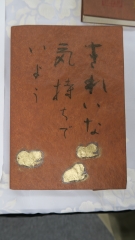 きれいな
気持ちで
いよう